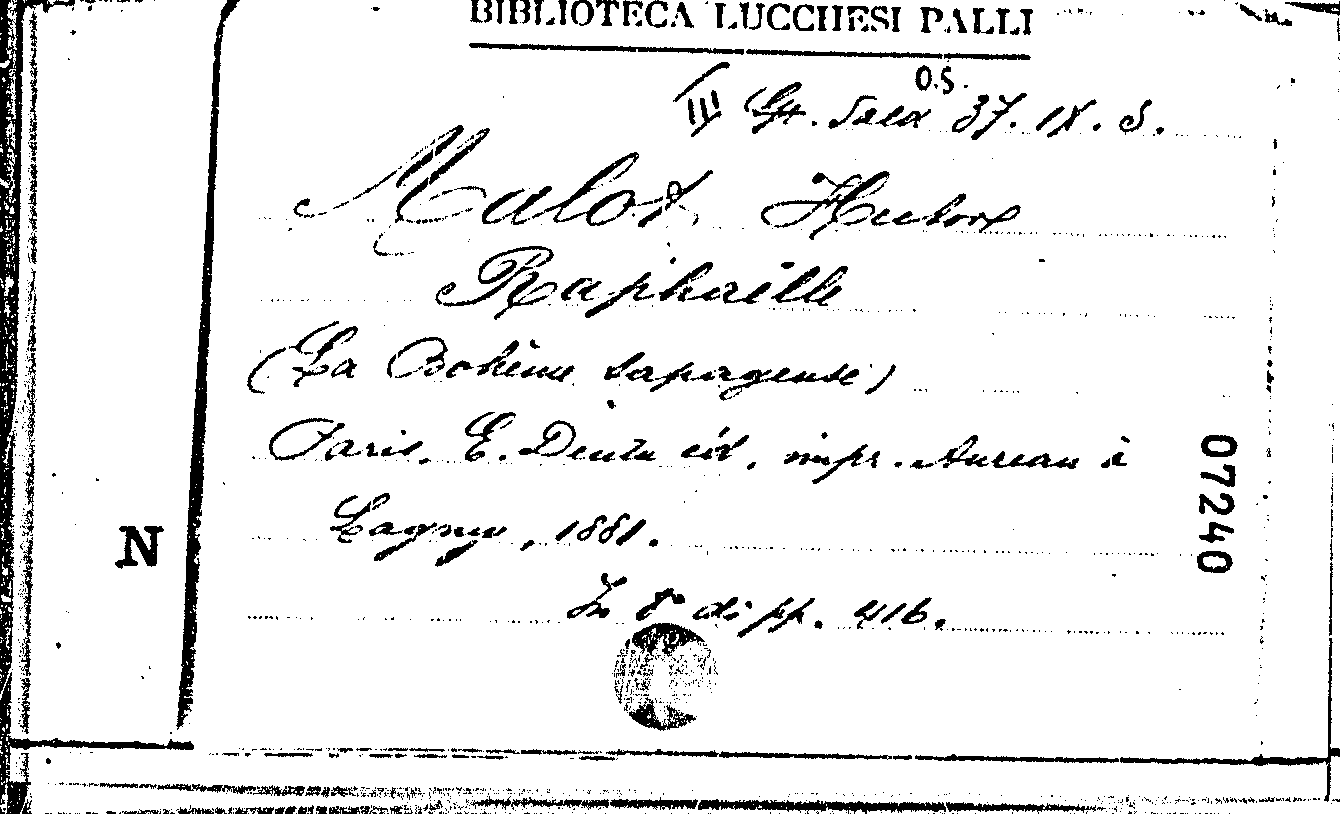 BIBLIOTECA LUCCHESI PALLI
O.S.
III Sala 37. IX. S.
Malot Hector
Raphaëlle
(La Bohême tapageuse)
Paris, E. Dentu éd., impr. Aureau à
Lagny, 1881.
In 8° di pp. 416.
N
07240